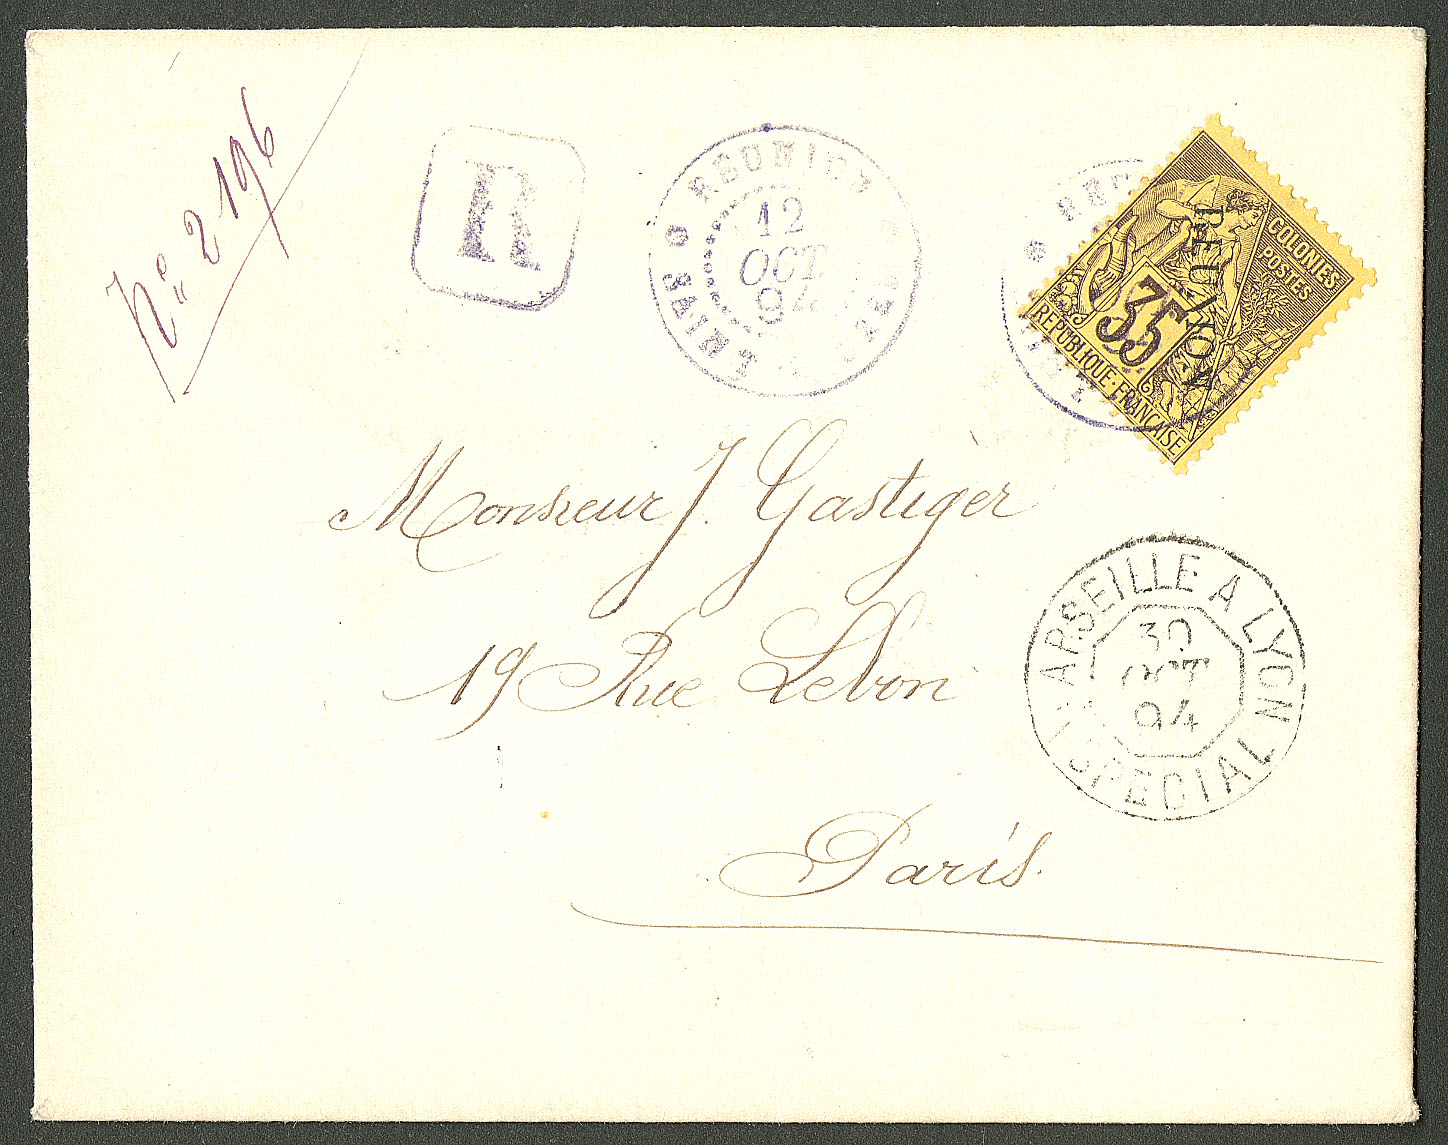 Nº 2196
R
REUNION
12
OCT.
94
COLONIES
POSTES
REUNION
35
REPUBLIQUE FRANÇAISE
Monsieur J. Gastiger
19 Rue Lebon
Paris.
MARSEILLE A LYON
30
OCT
94
SPECIAL